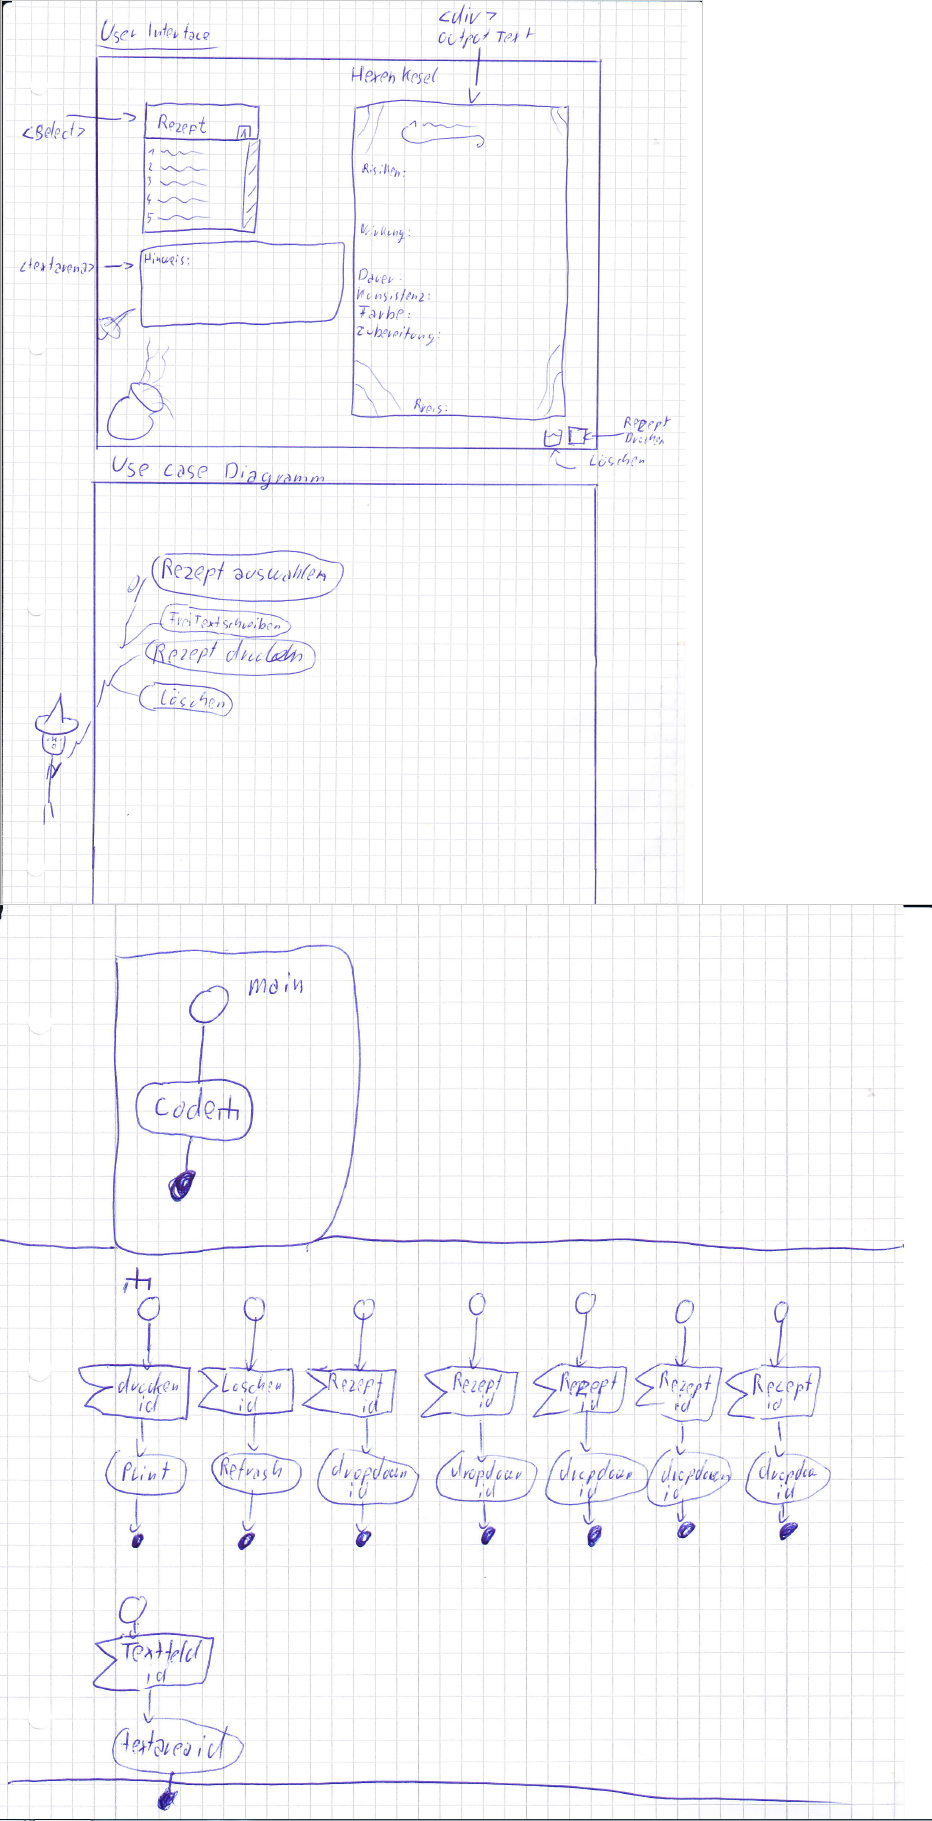 User Interface
<div>
output Text
Hexenkesel
<Select>
Rezept
1
2
3
4
5
<textarena>
Hinweis:
Risiken:
Wirkung:
Dauer:
Konsistenz:
Farbe:
Zubereitung:
Preis:
Rezept
Drucken
Löschen
Use case Diagramm
Rezept auswahlen
FreiTextschreiben
Rezept drucken
Löschen
main
Code
drucken
id
Löschen
id
Rezept
id
Rezept
id
Rezept
id
Rezept
id
Recept
id
Print
Refrash
dropdown
id
dropdown
id
dropdown
id
dropdown
id
dropdow
id
Textfeld
id
textarea id